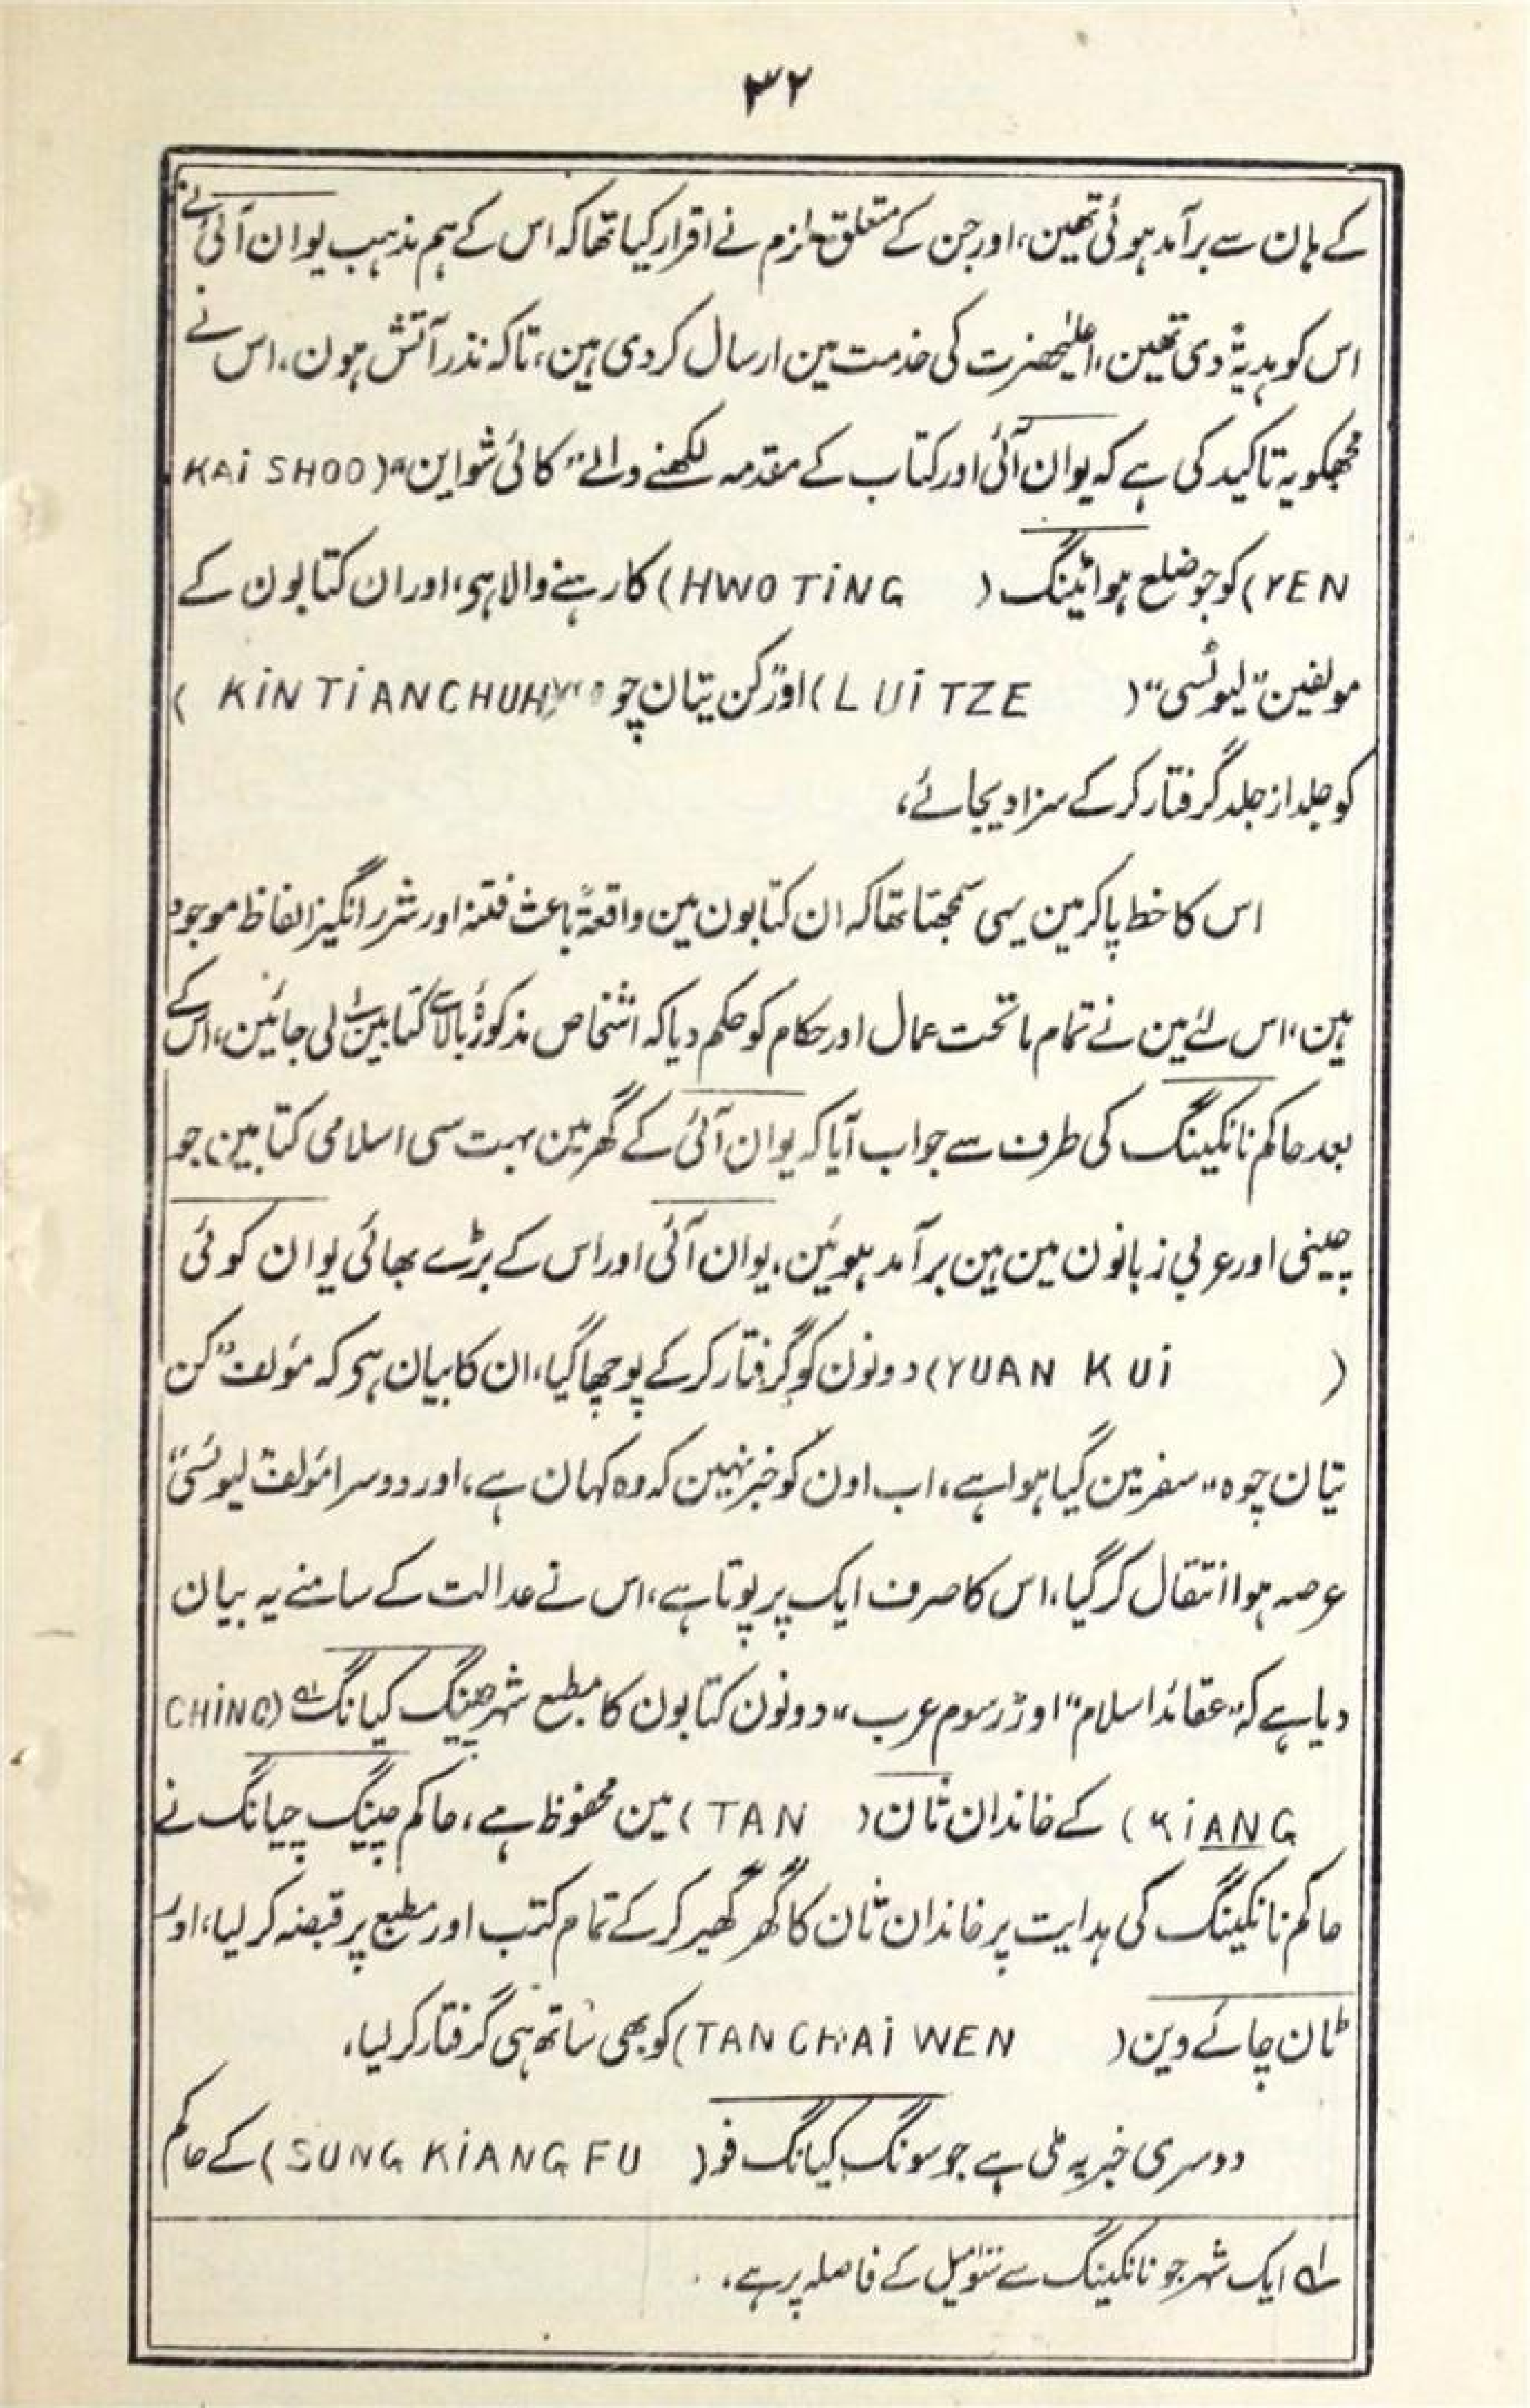 ۳۲
کے ہان سے برآمد ہوئی تھین، اور جن کے متعلق ملزم نے اقرار کیا تھا کہ اس کے ہم مذہب یوان آئی نے
اس کو ہدیۃً دی تھین، اعلیٰحضرت کی خدمت مین ارسال کر دی ہین، تاکہ نذر آتش ہون، اس نے
مجھکو یہ تاکید کی ہے کہ یوان آئی اور کتاب کے مقدمہ لکھنے والے "کائی شواین" (KAi SHOO
YEN) کو جو ضلع ہواٹینگ (HWO TiNG) کا رہنے والا ہی، اور ان کتابون کے
مولفین "لیوٹسی" (LUi TZE) اور "کن تیان چو" (KiN TiANCHUH)
کو جلد از جلد گرفتار کر کے سزا دیجائے،
اس کا خط پا کر مین یہی سمجھتا تھا کہ ان کتابون مین واقعۃً باعث فتنہ اور شرر انگیز الفاظ موجود
ہین، اس لئے مین نے تمام ماتحت عمال اور حکام کو حکم دیا کہ اشخاص مذکورۂ بالا سے کتابین لے لی جائین، اس کے
بعد حاکم نانکینگ کی طرف سے جواب آیا کہ یوان آئی کے گھر مین بہت سی اسلامی کتابین جو
چینی اور عربی زبانون مین ہین برآمد ہوئین، یوان آئی اور اس کے بڑے بھائی یوان کوئی
(YUAN KUi) دونون کو گرفتار کر کے پوچھا گیا، ان کا بیان ہی کہ مؤلف "کن
تیان چوہ" سفر مین گیا ہوا ہے، اب اون کو خبر نہین کہ وہ کہان ہے، اور دوسرا مؤلف "لیوٹسی"
عرصہ ہوا انتقال کر گیا، اس کا صرف ایک پرپوتا ہے، اس نے عدالت کے سامنے یہ بیان
دیا ہے کہ "عقائد اسلام" اور "رسوم عرب" دونون کتابون کا مطبع شہر چینگ کیانگ لہ (CHiNG
KiANG) کے خاندان ٹان (TAN) مین محفوظ ہے، حاکم چینگ چیانگ نے
حاکم نانکینگ کی ہدایت پر خاندان ٹان کا گھر گھیر کر کے تمام کتب اور مطبع پر قبضہ کر لیا، اور
ٹان چائے وین (TAN CHAi WEN) کو بھی ساتھ ہی گرفتار کر لیا،
دوسری خبر یہ ملی ہے جو سونگ کیانگ فو (SUNG KiANG FU) کے حاکم
لہ ایک شہر جو نانکینگ سے سَو میل کے فاصلہ پر ہے،